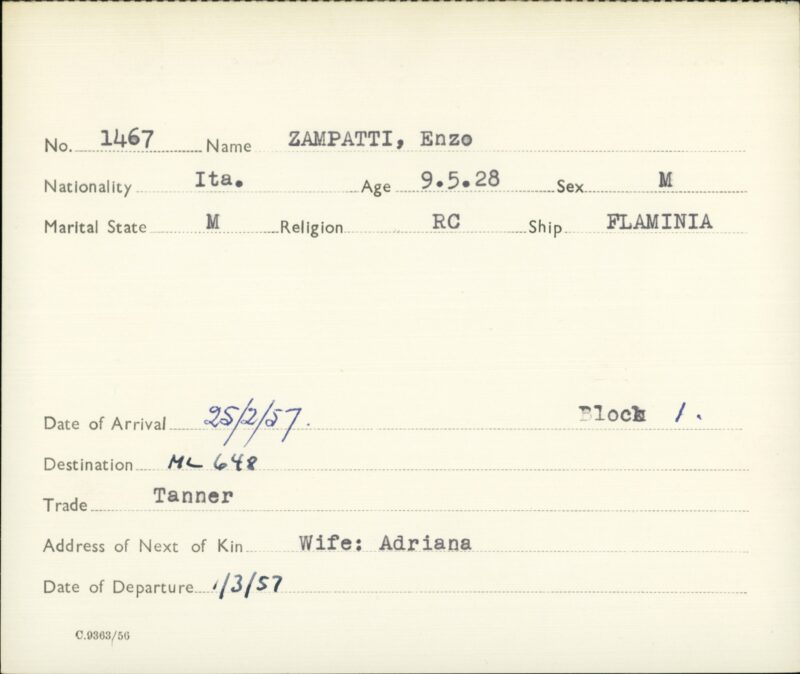 No. 1467 Name ZAMPATTI, Enzo
Nationality Ita. Age 9.5.28 Sex M
Marital State M Religion RC Ship FLAMINIA
Date of Arrival 25/2/57. Block 1.
Destination ML 648
Trade Tanner
Address of Next of Kin Wife: Adriana
Date of Departure 1/3/57
C.9363/56